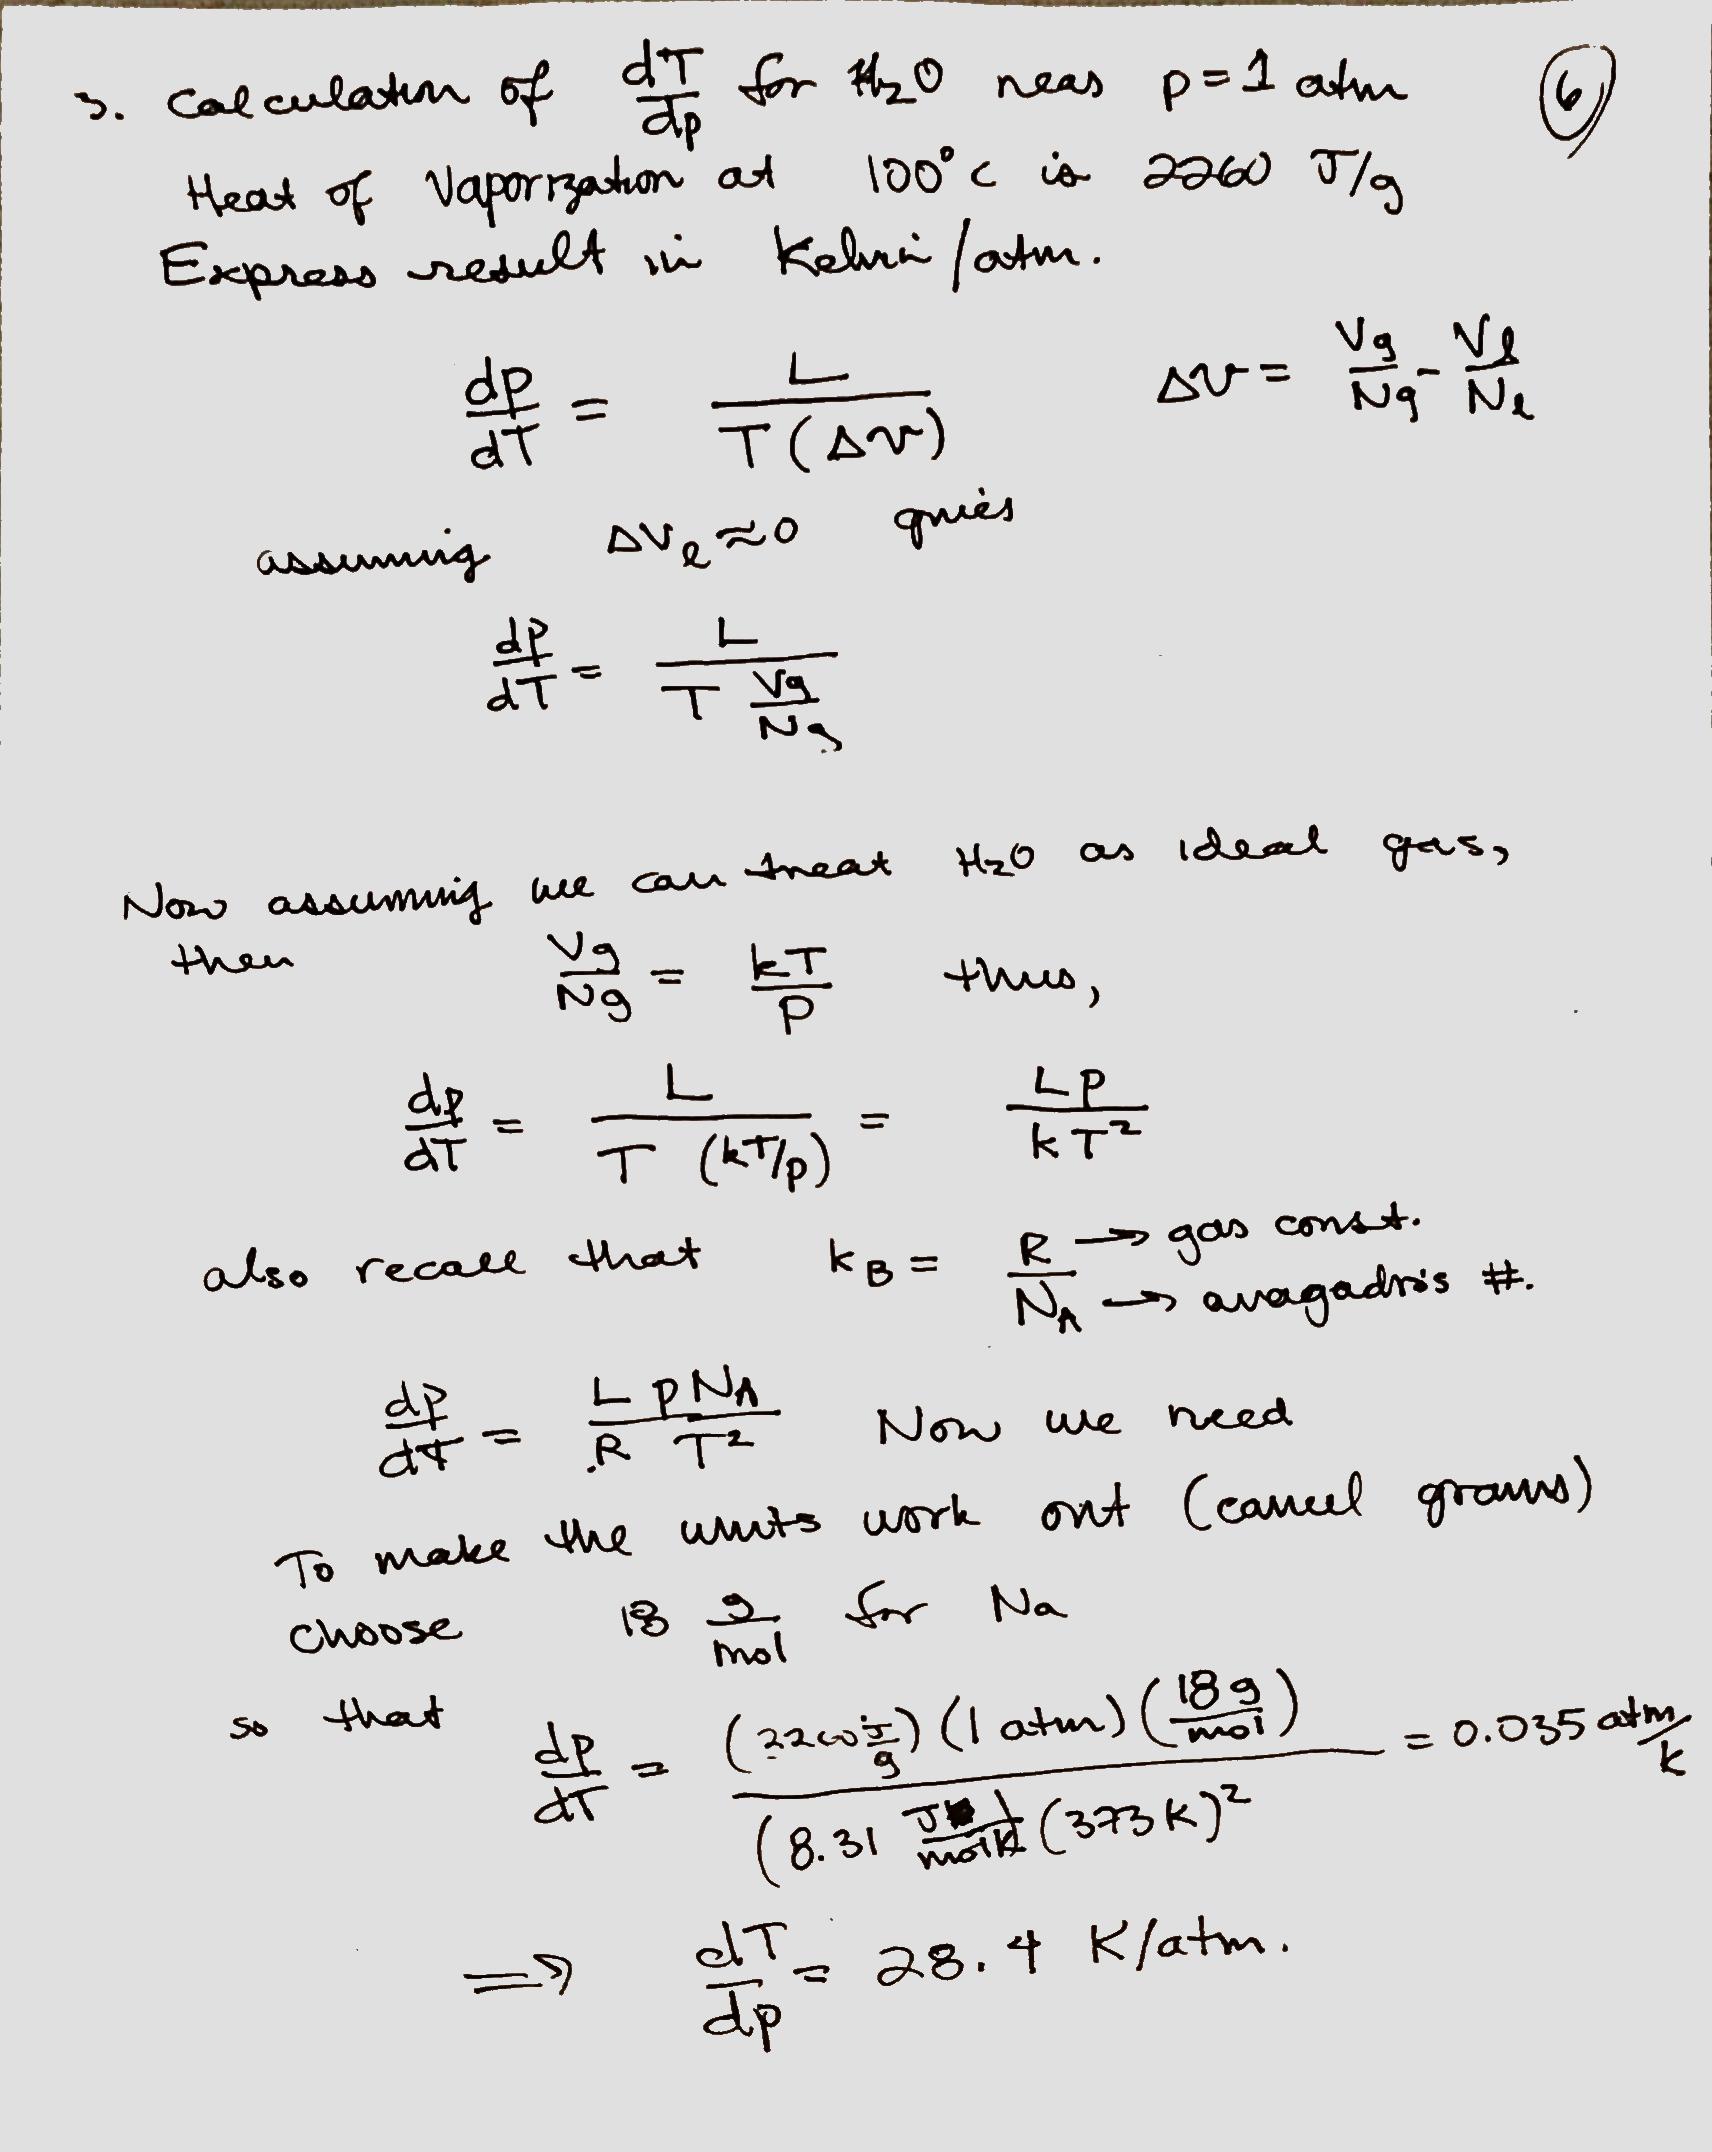 3. Calculation of dT/dp for H₂O near p = 1 atm (6)
Heat of Vaporization at 100°C is 2260 J/g
Express result in Kelvin/atm.
dp/dT = L / T(Δv)    Δv = Vg/Ng - Vl/Nl
assuming ΔVl ≈ 0 gives
dP/dT = L / (T Vg/Ng)
Now assuming we can treat H₂O as ideal gas,
then Vg/Ng = kT/P thus,
dp/dT = L / T (kT/p) = LP / kT²
also recall that kB = R → gas const. / NA → avagadro's #.
dp/dT = L P NA / R T² Now we need
To make the units work out (cancel grams)
choose 18 g/mol for Na
so that dP/dT = (2260 J/g)(1 atm)(18 g/mol) / (8.31 J/mol K)(373 K)² = 0.035 atm/K
⇒ dT/dp = 28.4 K/atm.